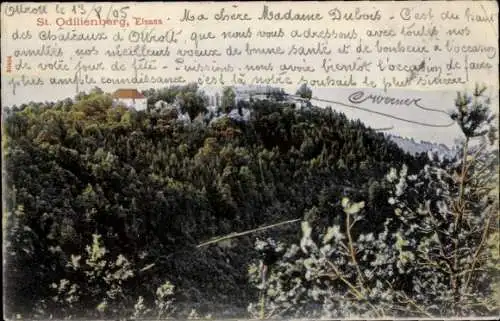 Ottrott 13/8/05 Ma chère Madame Dubois - C'est du haut
St. Odilienberg, Elsass
des Châteaux d'Ottrott, que nous vous adressons, avec toutes nos
amitiés nos meilleurs voeux de bonne santé et de bonheur à l'occasion
de votre jour de fête - Puissions nous avoir bientôt l'occasion de faire
plus ample connaissance c'est là notre souhait le plus sincère